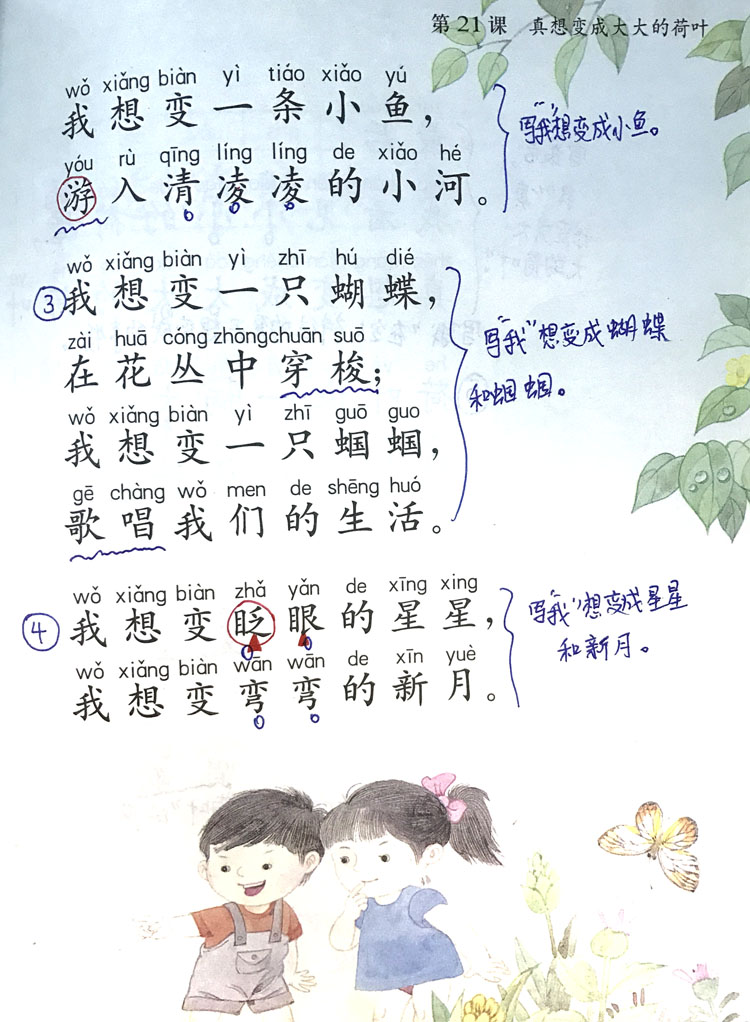 第21课 真想变成大大的荷叶
wǒ xiǎng biàn yì tiáo xiǎo yú
我想变一条小鱼，
yóu rù qīng líng líng de xiǎo hé
游入清凌凌的小河。
写"我"想变成小鱼。
wǒ xiǎng biàn yì zhī hú dié
③我想变一只蝴蝶，
zài huā cóng zhōng chuān suō
在花丛中穿梭；
wǒ xiǎng biàn yì zhī guō guo
我想变一只蝈蝈，
gē chàng wǒ men de shēng huó
歌唱我们的生活。
写"我"想变成蝴蝶
和蝈蝈。
wǒ xiǎng biàn zhǎ yǎn de xīng xing
④我想变眨眼的星星，
wǒ xiǎng biàn wān wān de xīn yuè
我想变弯弯的新月。
写"我"想变成星星
和新月。